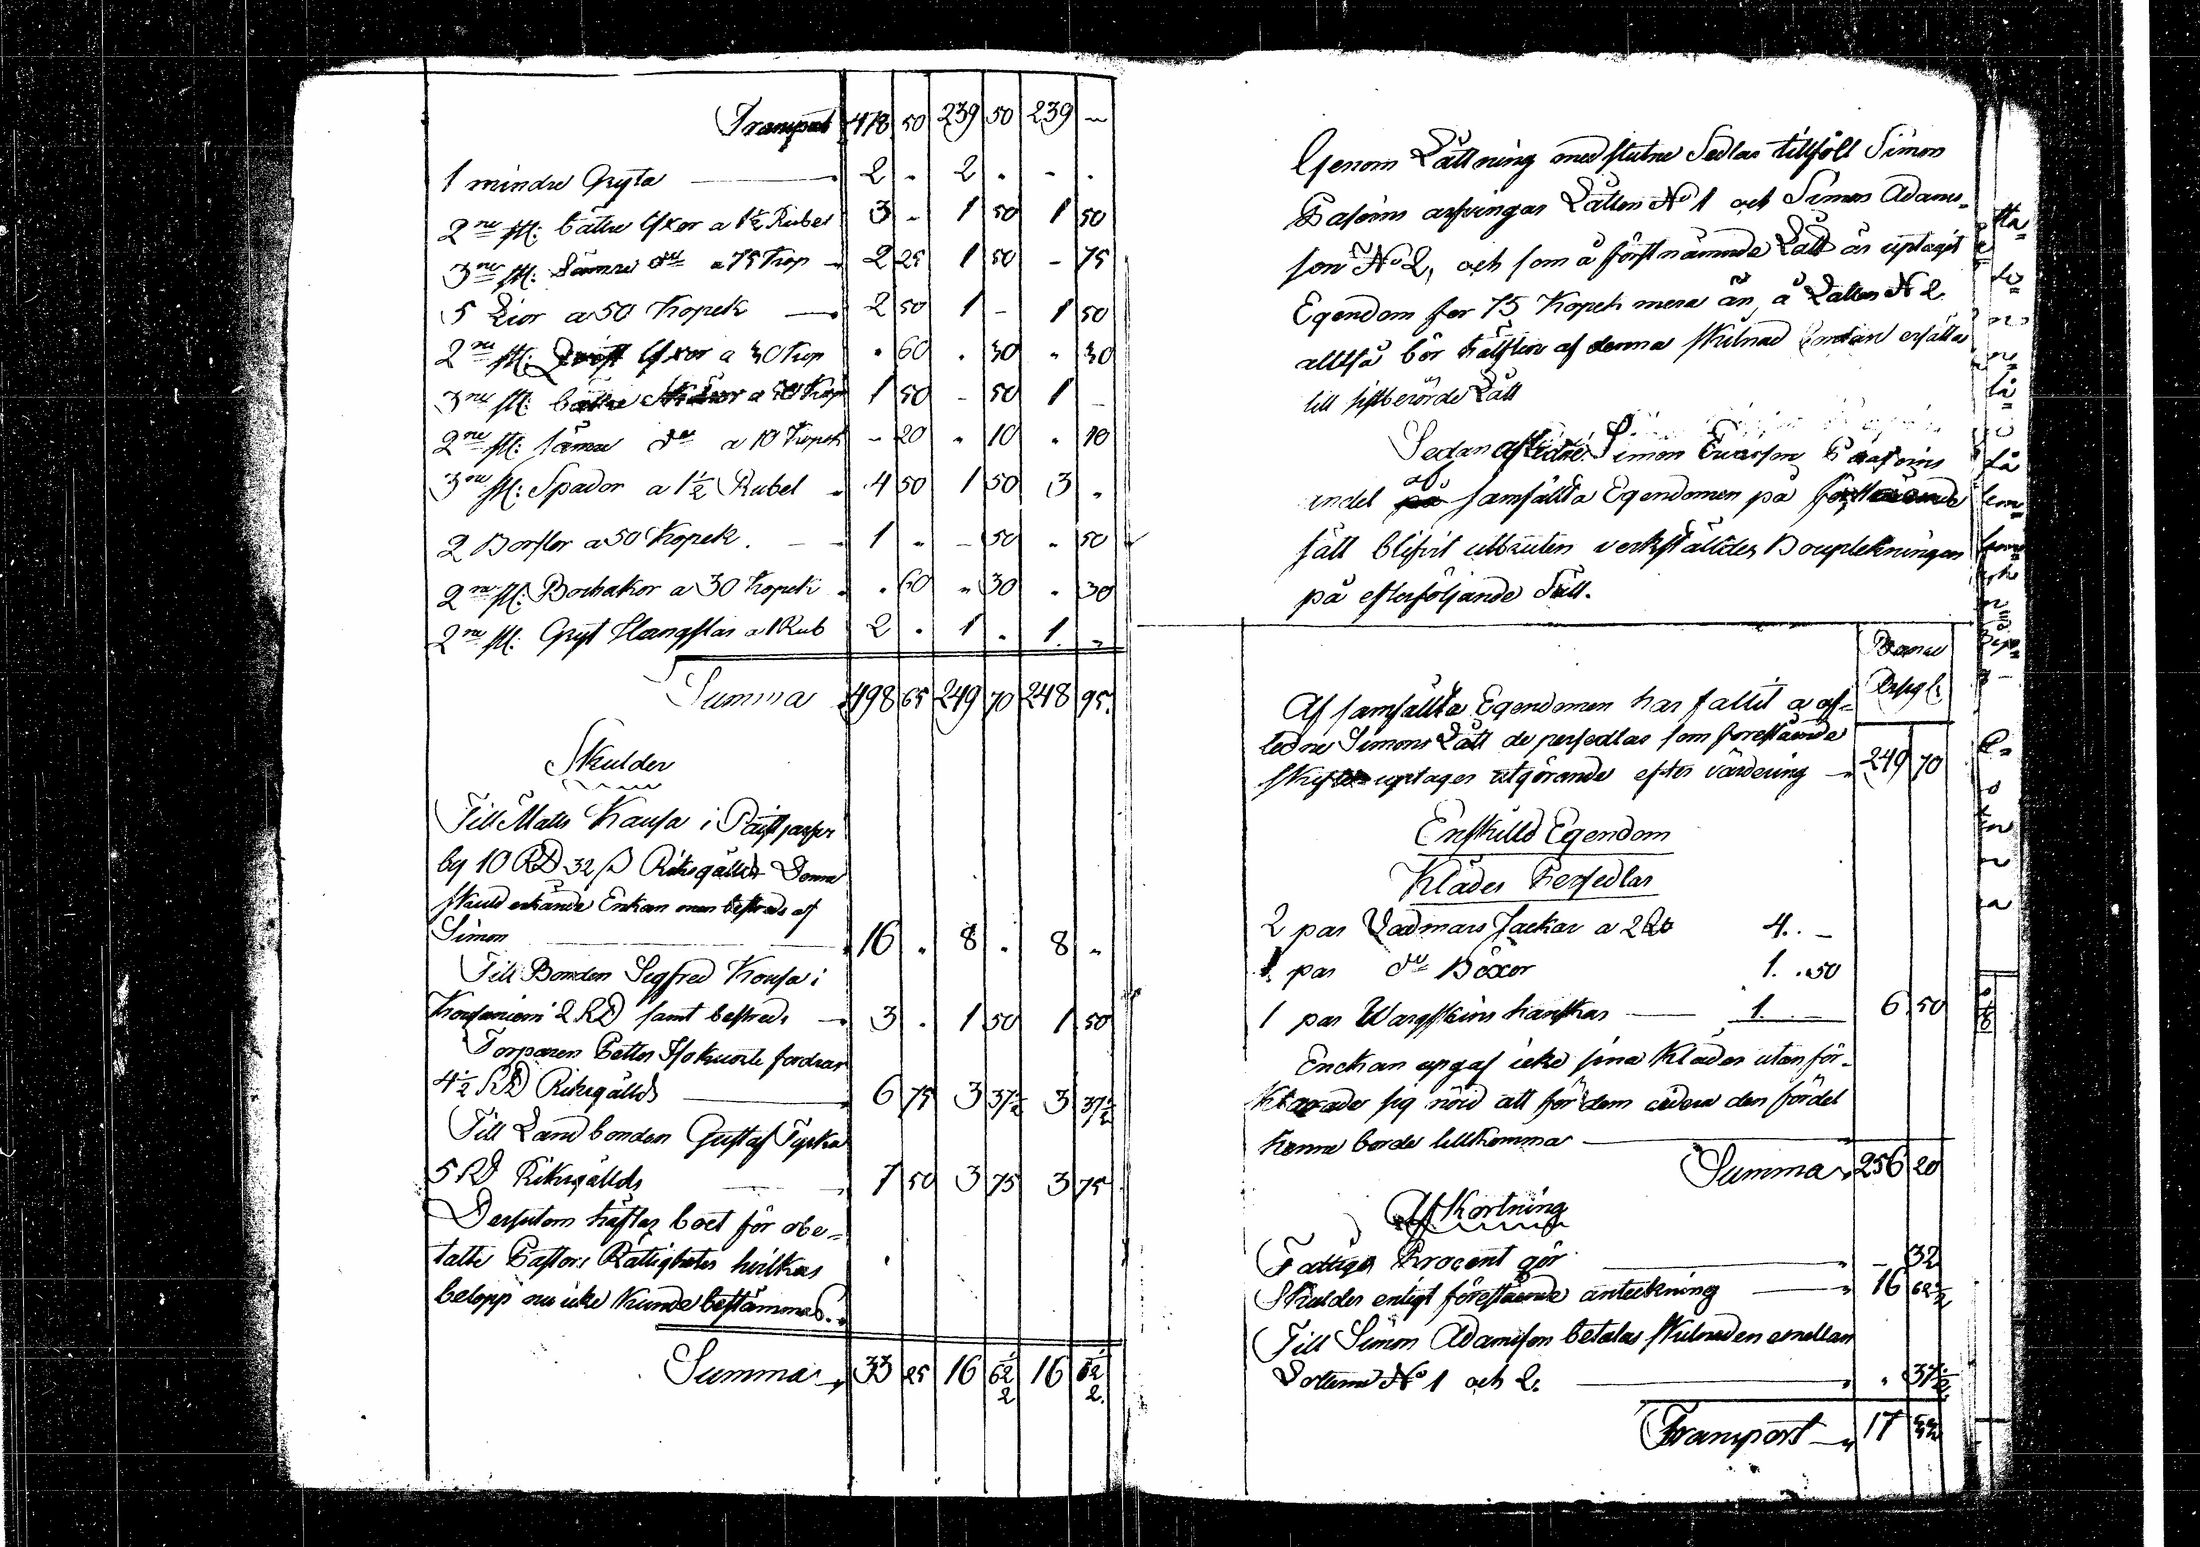 Transport 478 50 239 50 239 –
1 mindre Gryta – 2 „ 2 „ – „
2ne st: bättre Yxor a 1½ Rubel 3 – 1 50 1 50
3ne st: Sämre do a 75 Kop – 2 25 1 50 – 75
5 Lior a 50 Kopek – 2 50 1 – 1 50
2ne st: Yxor a 30 Kop „ 60 „ 30 „ 30
3ne st: bättre a 50 Kop 1 50 – 50 1 –
2ne st: sämre do a 10 Kopek – 20 „ 10 „ 10
3ne st: Spador a 1½ Rubel „ 4 50 1 50 3 „
2 Borstor a 50 Kopek. – 1 „ – 50 „ 50
2ne st: Borhakor a 30 Kopek „ „ 60 „ 30 „ 30
2ne st: Gryt Hangslar a 1 Rub 2 „ 1 „ 1 „
Summa 498 65 249 70 248 95.
Skulder
Till Matts Kausa i
by 10 RD 32 ß Riksgälds Denna
skuld erkände Enkan men bestreds af
Simon – 16 „ 8 „ 8 „
Till Bonden Segfred Konsa i
2 RD samt bestreds – 3 „ 1 50 1 50
Torparen Petter fordrar
4½ RD Riksgälds – 6 75 3 37½ 3 37½
Till Landbonden Gustaf Tyska
5 RD Riksgälds – 7 50 3 75 3 75
Dessutom häftar boet för obe-
talte Pastors Rättigheter hvilkas
belopp nu icke kunde bestämmas.
Summa 33 25 16 62½ 16 62½
Genom Lättning med slutne Sedlar tillföll Simon
arfvingar Lätten No 1 och Simon Adams-
son No 2, och som å förstnämnde Lätt är uptagit
Egendom för 75 Kopek mera än å Lätten N 2
alltså bör hälften af denna skilnad erfättas
till sistberörde Lätt
Sedan afledne Simon
andel af samfällta Egendomen på
sätt blifvit utbruten verkställdes Boupteckningen
på efterföljande Sätt.
Banco
Af samfällta Egendomen har fallit a af-
ledne Simons Lätt de persedlar som förestående
skifte uptager utgörande efter värdering – 249 70
Enskilld Egendom
Kläder Persedlar
2 par Vadmars Jackar a 2 Ro 4. –
1 par do Böxor 1. 50
1 par Wargskins hanskar – 1. – 6 50
Enckan upgaf icke sina Kläder utan för-
klarades sig nöid att för dem den fördel
henne borde tillkomma –
Summa 256 20
Afkortning
Fattiges Procent gör – – 32
Skulder enligt förestående anteckning – 16 62½
Till Simon Adamsson betalas skilnaden emellan
Lotterne No 1 och 2. – „ 37½
Transport – 17